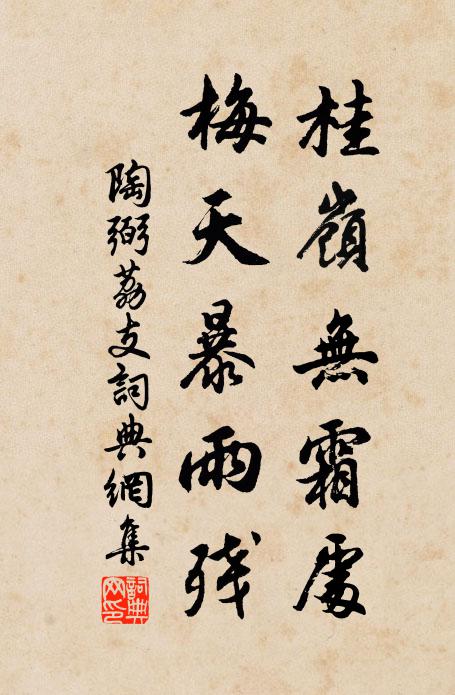 桂嶺無霜處
梅天暴雨殘
陶弼荔支詞典網集
詞典